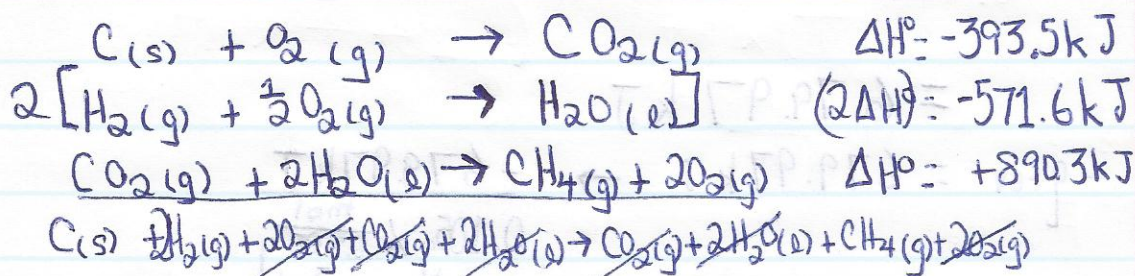 C(s) + O₂(g) → CO₂(g) ΔH°= -393.5kJ
2[H₂(g) + ½O₂(g) → H₂O(l)] (2ΔH°)= -571.6kJ
CO₂(g) + 2H₂O(l) → CH₄(g) + 2O₂(g) ΔH°= +890.3kJ
C(s) + 2H₂(g) + 2O₂(g) + CO₂(g) + 2H₂O(l) → CO₂(g) + 2H₂O(l) + CH₄(g) + 2O₂(g)